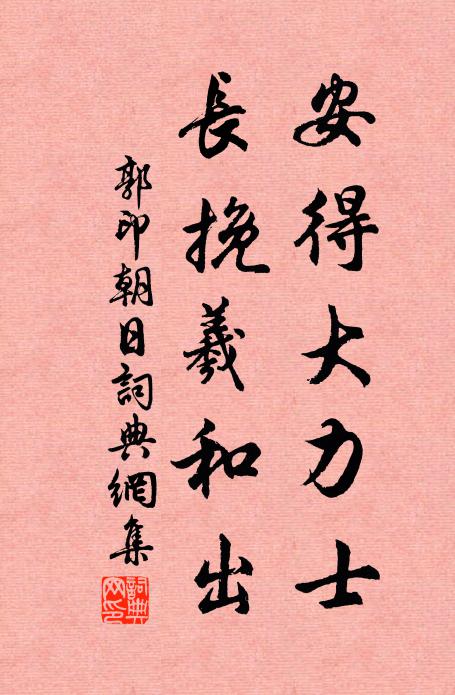 安得大力士
長挽羲和出
郭印朝日詞典網集
詞典网印